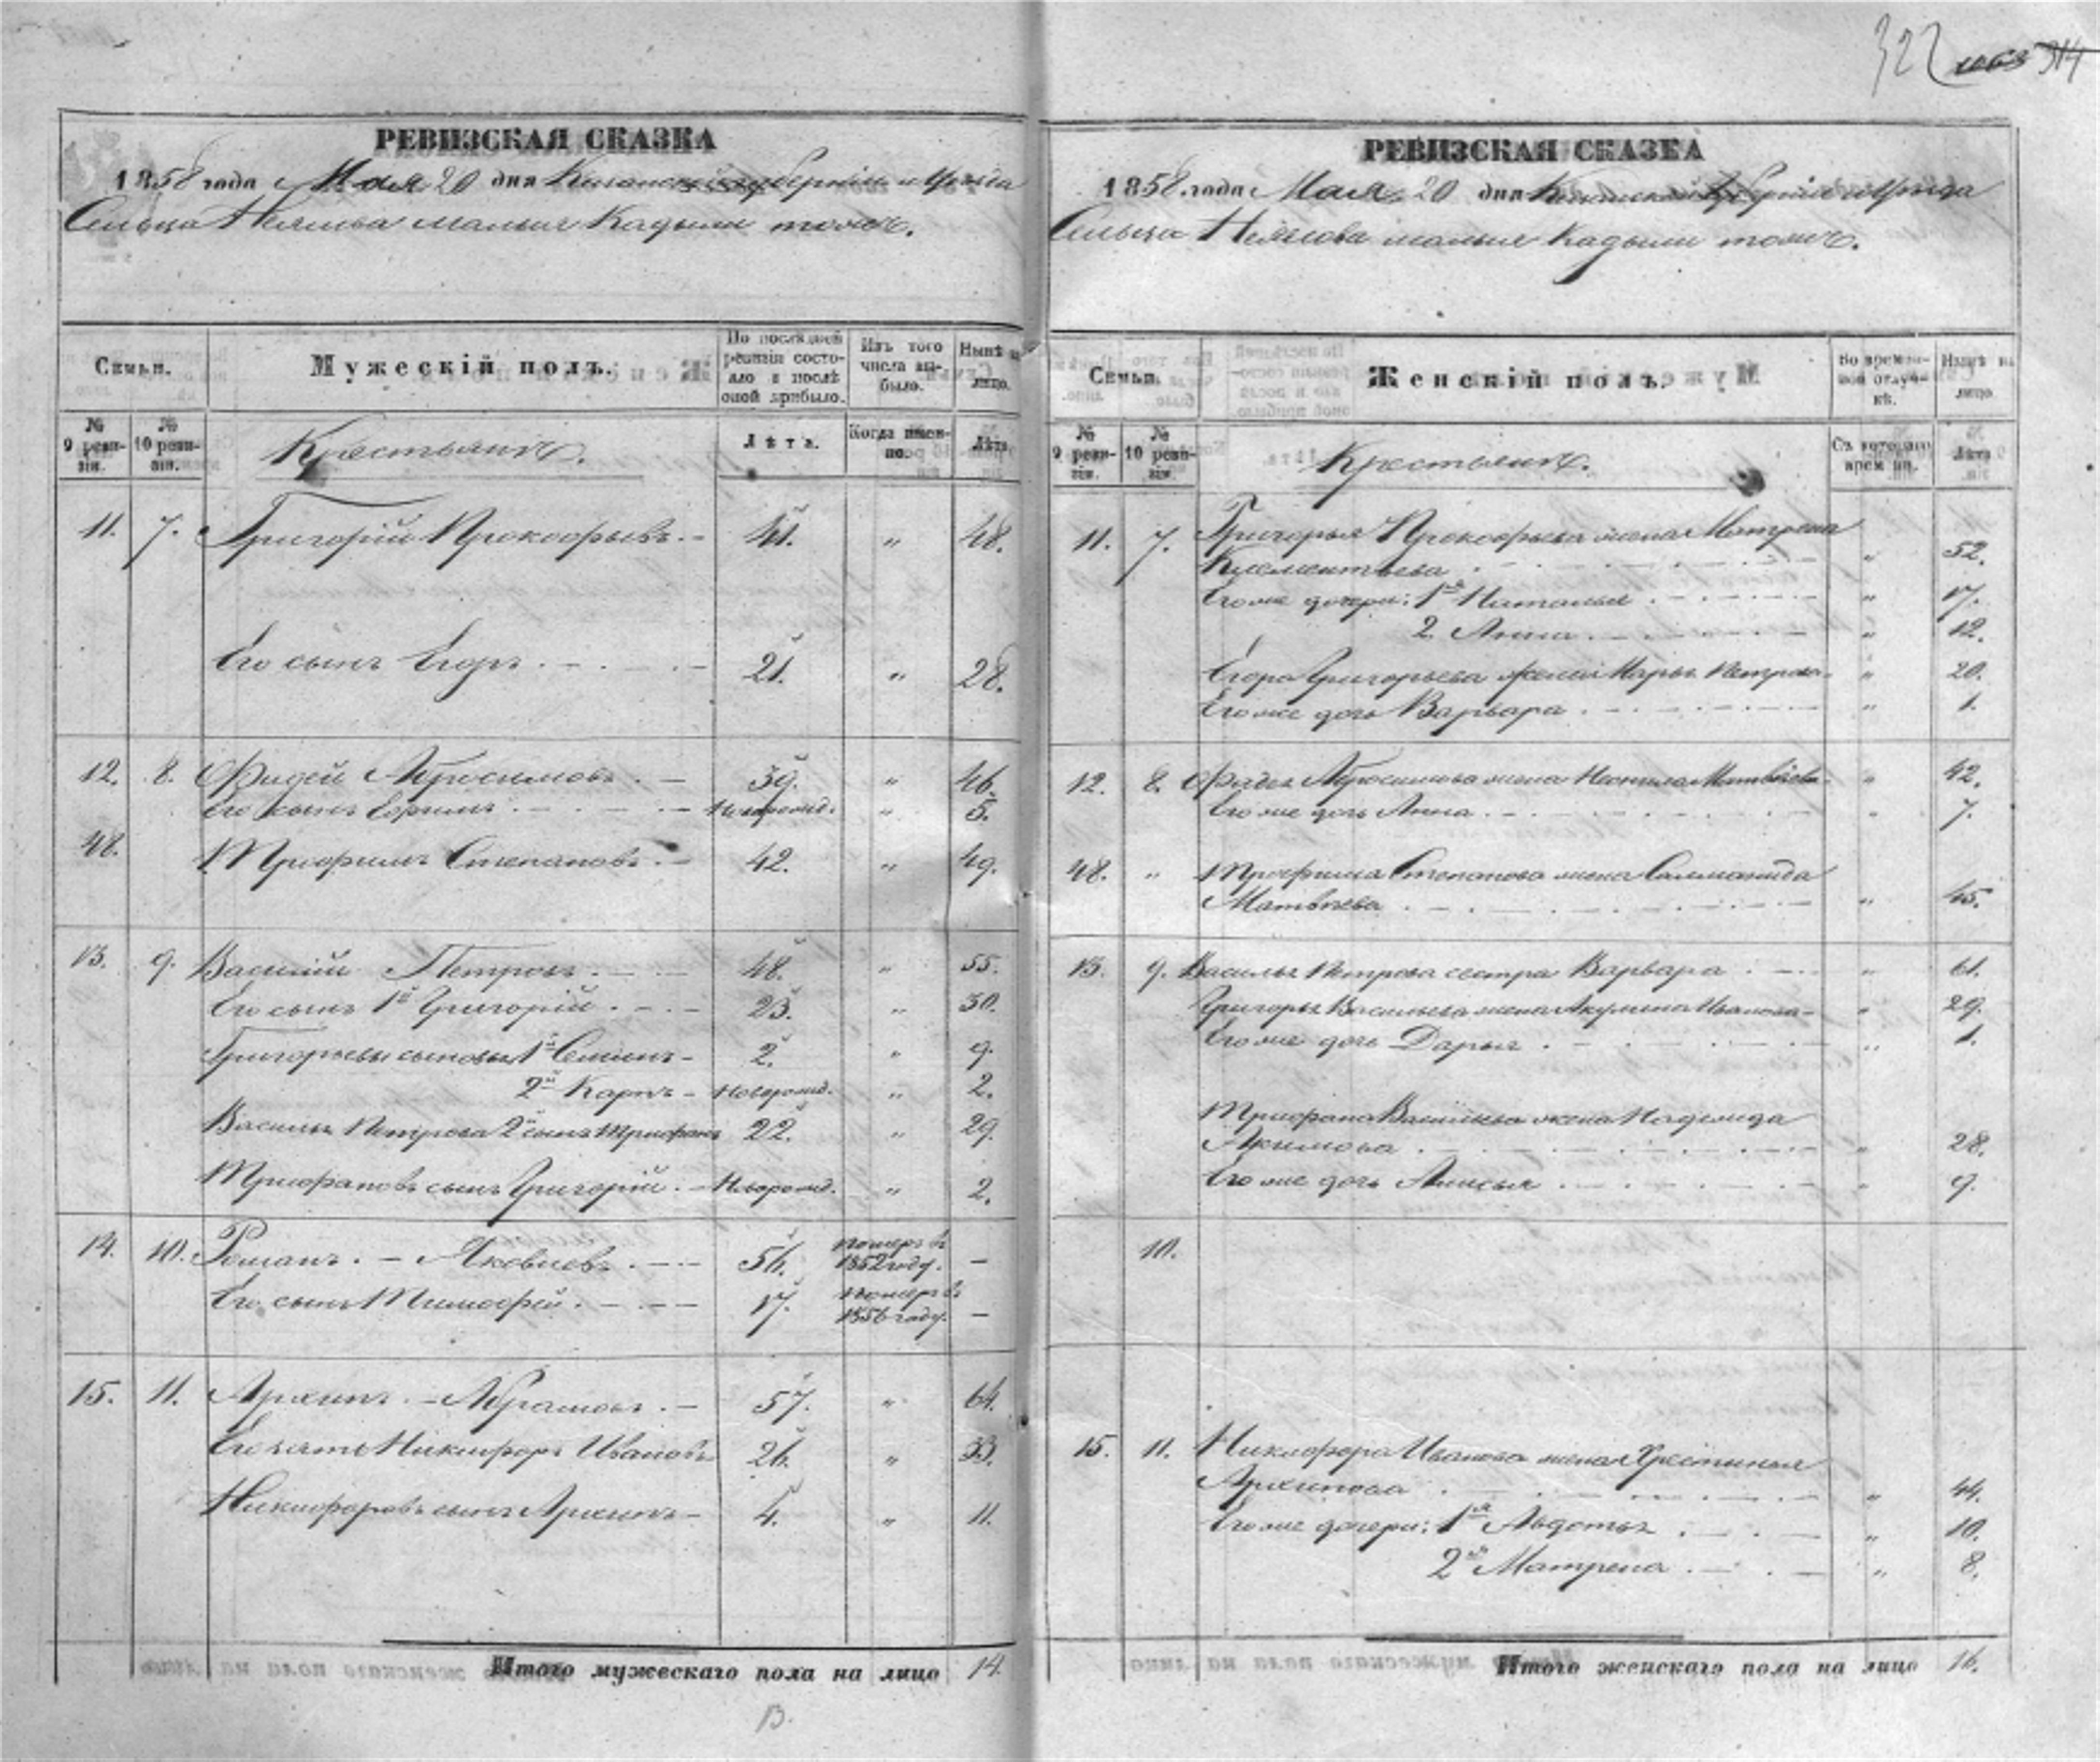 322 314
РЕВИЗСКАЯ СКАЗКА
1858 года Мая 20 дня Казанской губерніи и уѣзда
Сельца малыя Кадыли тожъ.
Семьи.
Мужескій полъ.
По послѣдней ревизіи состояло и послѣ оной прибыло.
Изъ того числа выбыло.
Нынѣ на лицо.
№ 9 ревизіи.
№ 10 ревизіи.
Крестьянъ.
Лѣта.
Когда именно.
Лѣта.
11. 7. Григорій Прокофьевъ. 41. " 48.
Его сынъ Егоръ. 21. " 28.
12. 8. Фадей Абросимовъ. 39. " 46.
Его сынъ Ефимъ. Новорожд. " 5.
48. Трифинъ Степановъ. 42. " 49.
13. 9. Василій Петровъ. 48. " 55.
Его сынъ 1й Григорій. 23. " 30.
Григорьевы сыновья 1й Семенъ 2. " 9.
2й Карпъ Новорожд. " 2.
Василья Петрова 2й сынъ Трифанъ 22. " 29.
Трифановъ сынъ Григорій. Новорожд. " 2.
14. 10. Романъ Яковлевъ. 56. померъ въ 1852 году. —
Его сынъ Тимофей. 17. померъ въ 1856 году. —
15. 11. Архипъ Абрамовъ. 57. " 64.
Его зять Никифоръ Ивановъ 26. " 33.
Никифоровъ сынъ Архипъ 4. " 11.
Итого мужескаго пола на лицо 14.
13.
РЕВИЗСКАЯ СКАЗКА
1858 года Мая 20 дня Казанской губерніи и уѣзда
Сельца малыя Кадыли тожъ.
Семьи.
Женскій полъ.
Во временной отлучкѣ.
Нынѣ на лицо.
№ 9 ревизіи.
№ 10 ревизіи.
Крестьянъ.
Съ котораго времени.
Лѣта
11. 7. Григорья Прокофьева жена Матрена
Клементьева " 52.
Его же дочери: 1я Наталья " 17.
2 Анна " 12.
Егора Григорьева жена Марья Петрова " 20.
Его же дочь Варвара " 1.
12. 8. Фадея Абросимова жена Матвѣева " 42.
Его же дочь Анна " 7.
48. " Трофима Степанова жена Саломанида
Матвѣева " 45.
13. 9. Василья Петрова сестра Варвара " 61.
Григорья Васильева жена Акулина Иванова " 29.
Его же дочь Дарья " 1.
Трифана Васильева жена Надежда
Акимова " 28.
Его же дочь Анисья " 9.
10.
15. 11. Никифора Иванова жена Хрестинья
Архипова " 44.
Его же дочери: 1я Авдотья " 10.
2я Матрена " 8.
Итого женскаго пола на лицо 16.